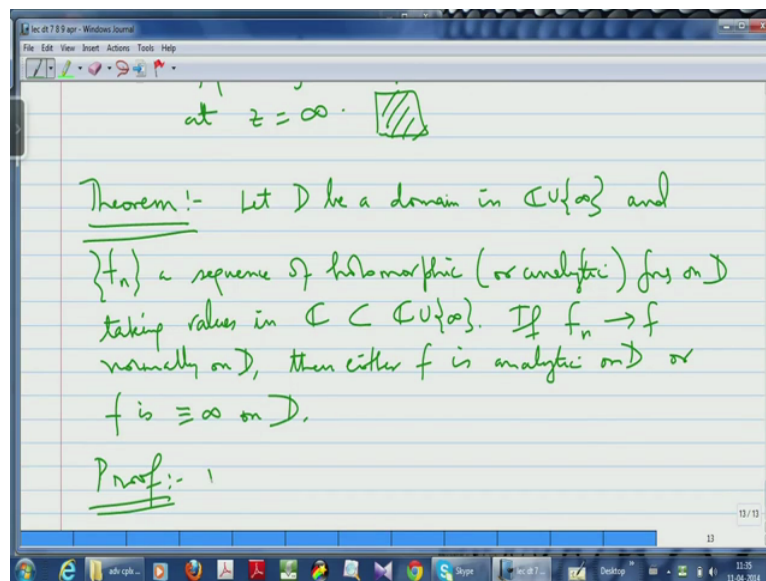 lec dt 7 8 9 apr - Windows Journal
File Edit View Insert Actions Tools Help
at z = ∞.
Theorem:- Let D be a domain in ℂ∪{∞} and
{fn} a sequence of holomorphic (or analytic) fns on D
taking values in ℂ ⊂ ℂ∪{∞}. If fn → f
normally on D, then either f is analytic on D or
f is ≡ ∞ on D.
Proof:-
13 / 13
13
adv cplx ...
Skype
lec dt 7 ...
Desktop
11:35
11-04-2014